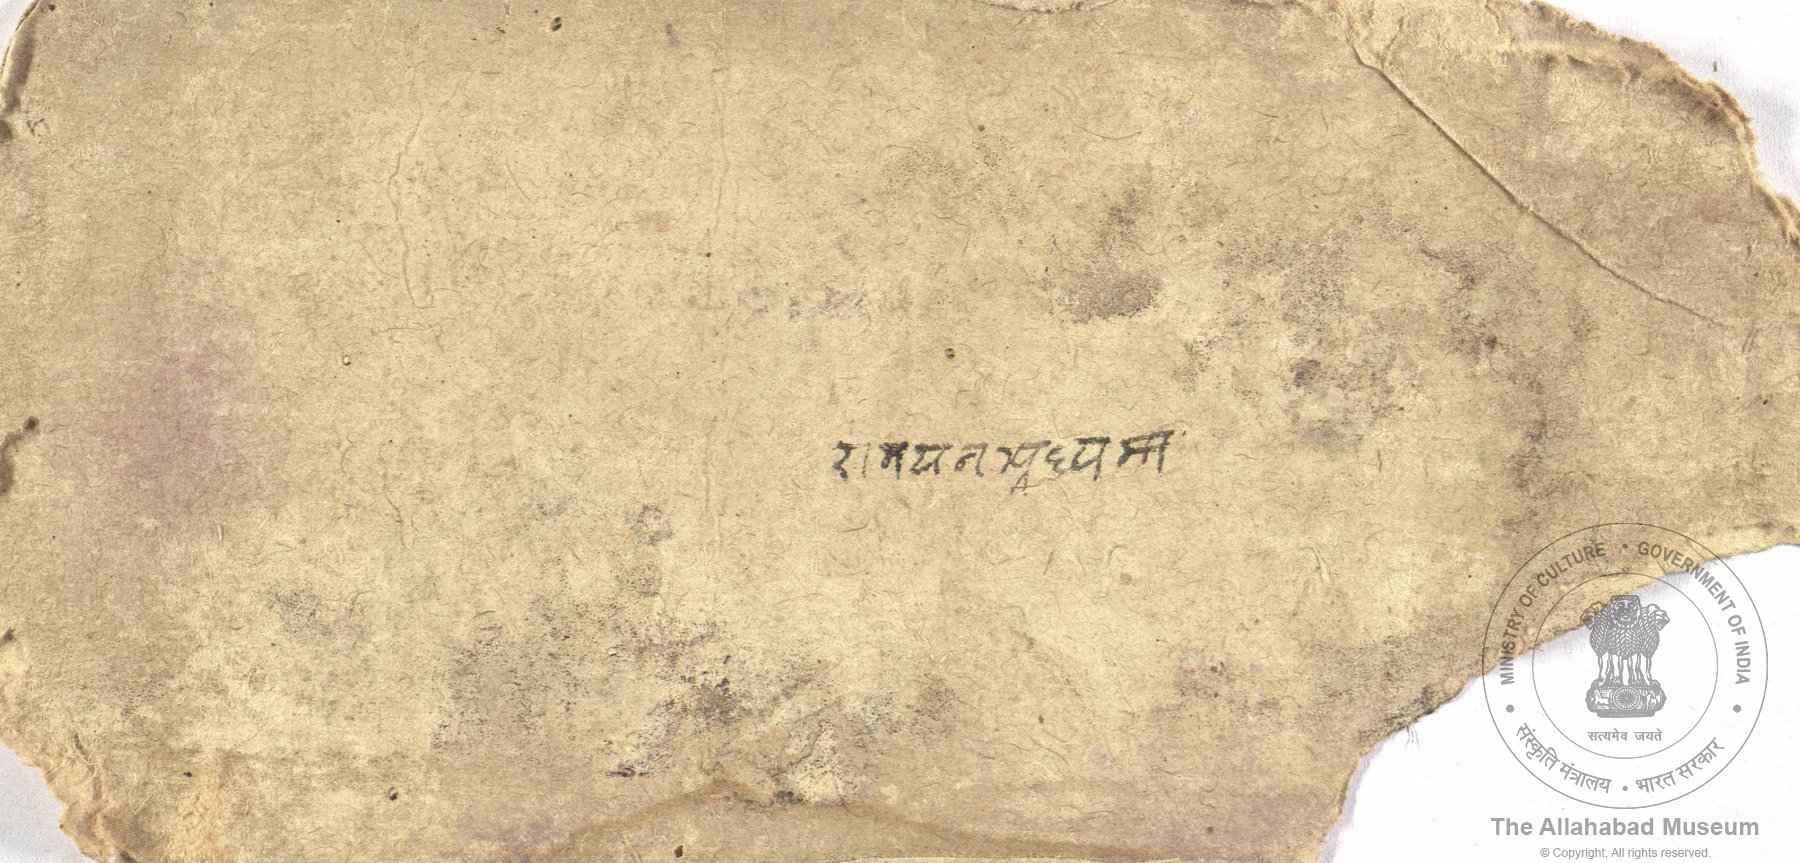 रामयन
MINISTRY OF CULTURE • GOVERNMENT OF INDIA
सत्यमेव जयते
संस्कृति मंत्रालय • भारत सरकार
The Allahabad Museum
© Copyright, All rights reserved.